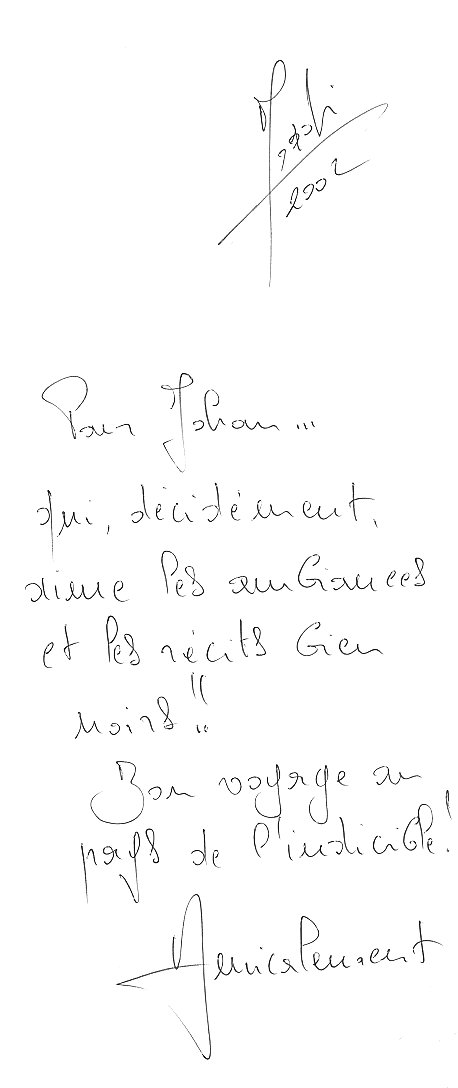 2002
Pour Johan...
qui, décidément,
aime les ambiances
et les récits bien
noirs !!
Bon voyage au
pays de l'indicible !
Amicalement